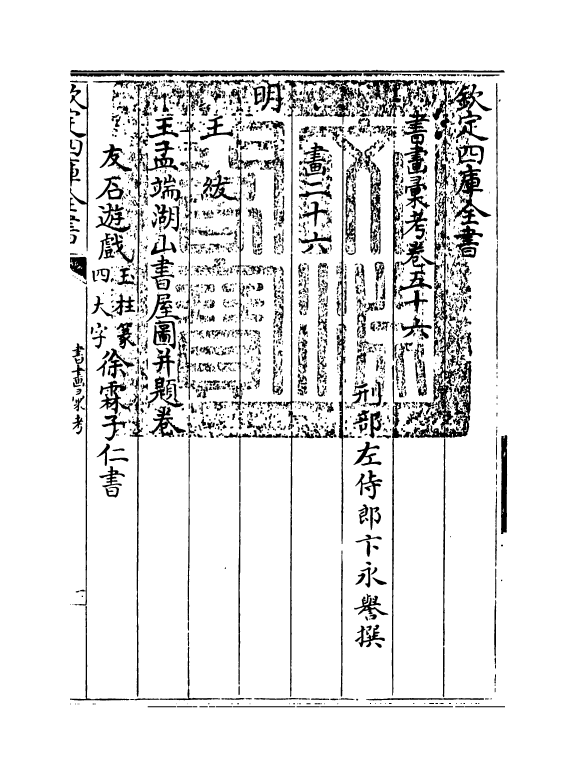 欽定四庫全書
書畫彙考卷五十六
刑部左侍郎卞永譽撰
畫二十六
明
王紱
王孟端湖山書屋圖并題卷
友石遊戲玉柱篆四大字徐霖子仁書
欽定四庫全書
書畫彙考